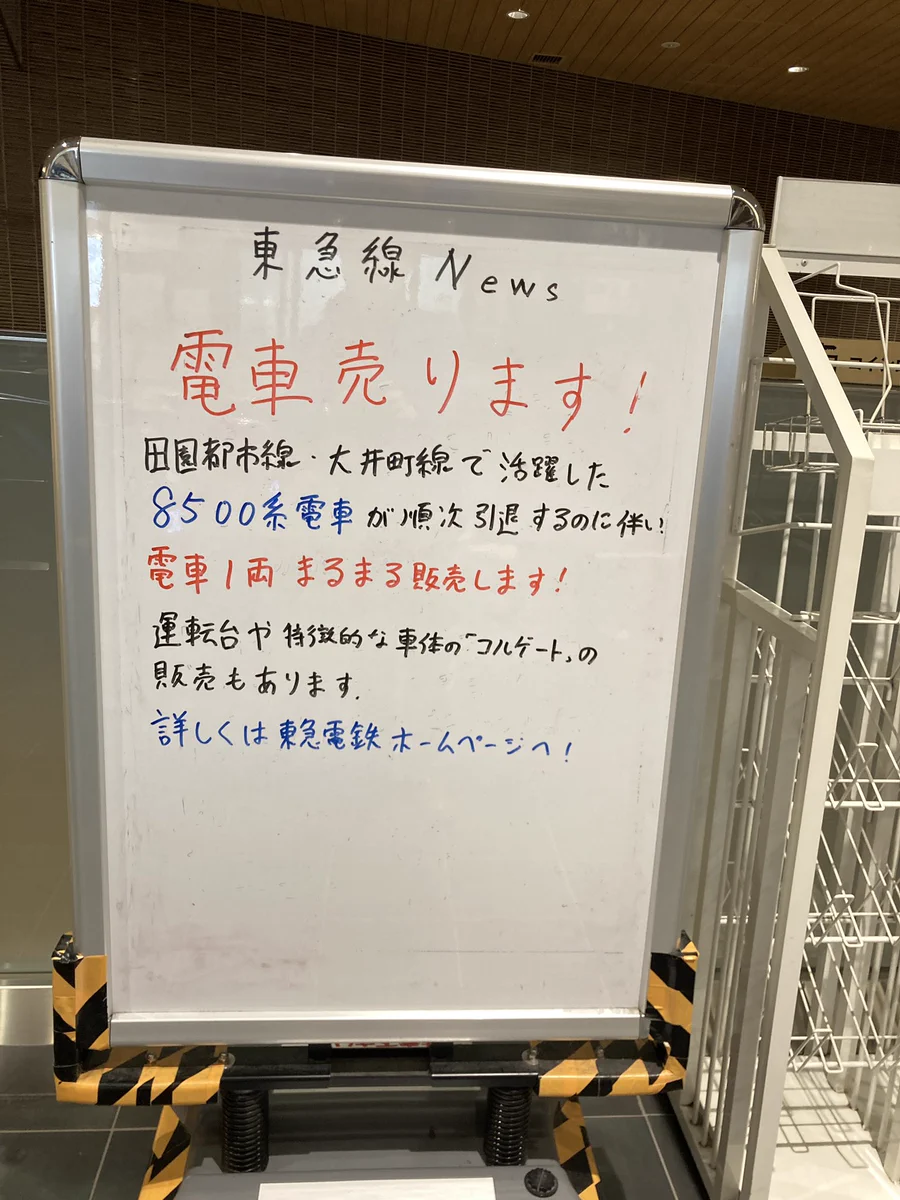 東急線 News
電車売ります!
田園都市線・大井町線で活躍した
8500系電車が順次引退するのに伴い
電車1両まるまる販売します!
運転台や特徴的な車体の「コルゲート」の
販売もあります.
詳しくは東急電鉄ホームページへ!